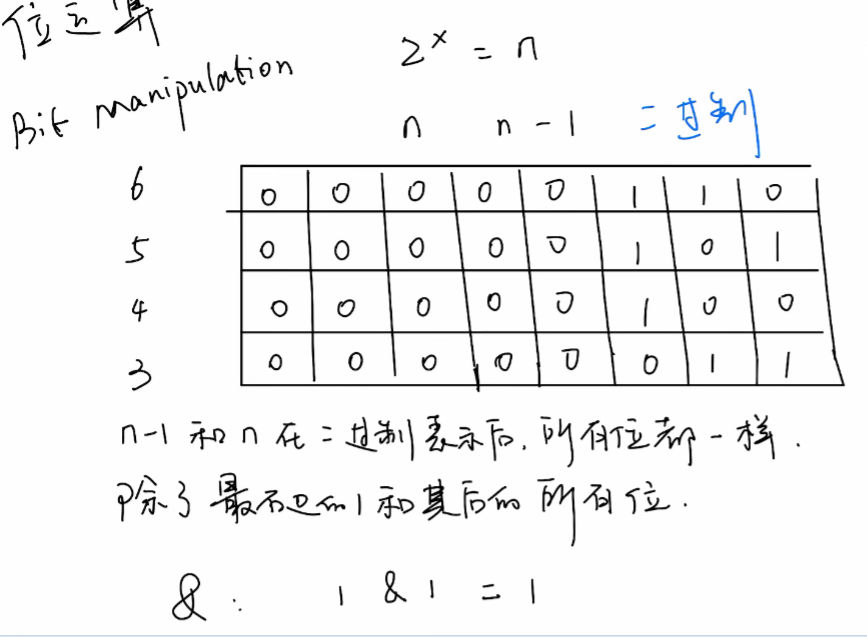 位运算
Bit manipulation
2^x = n
n n - 1 二进制
6 0 0 0 0 0 1 1 0
5 0 0 0 0 0 1 0 1
4 0 0 0 0 0 1 0 0
3 0 0 0 0 0 0 1 1
n-1 和 n 在二进制表示后,所有位都一样.
除了最右边的1和其后的所有位.
&: 1 & 1 = 1